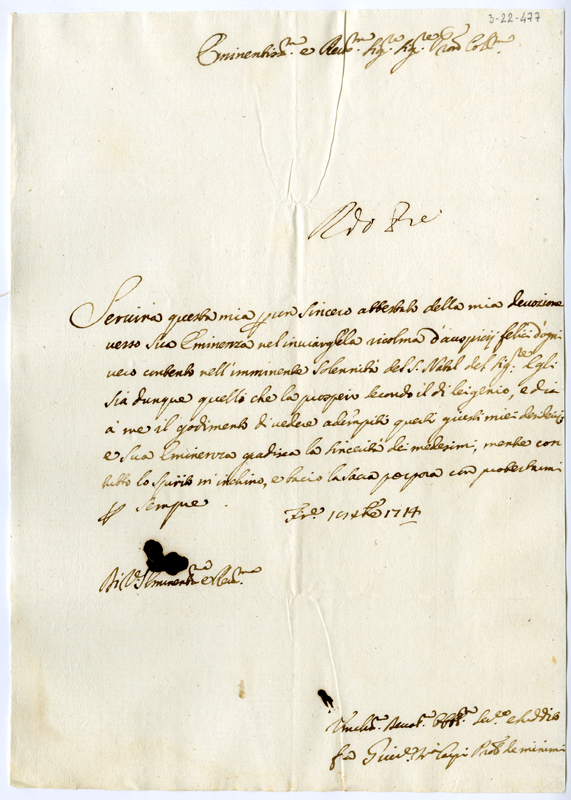 3-22-477
Eminentiss.mo e Rev.mo Sig.re Sig.re Pron Coll.mo
Servirà questa mia per un sincero attestato della mia devozione
verso Sua Eminenza nel inviargela ricolma d'auspicij felici d'ogni
vero contento nell'imminente solennità del S. Natal del Sig.re Egli
sia dunque quello che la prosperi secondo il di lei genio, e dia
à me il godimento di vedere adempiti questi giusti miei desiderij
e Sua Eminenza gradisca la sincerità dei medesimi, mentre con
tutto lo spirito m'inchino, e bacio la sacra porpora con protestarmi
per sempre.
Xbre 1714
Di V. Eminenza e Rev.ma
Humiliss. Devot. Obbl.mo Ser.e
fra de minimi